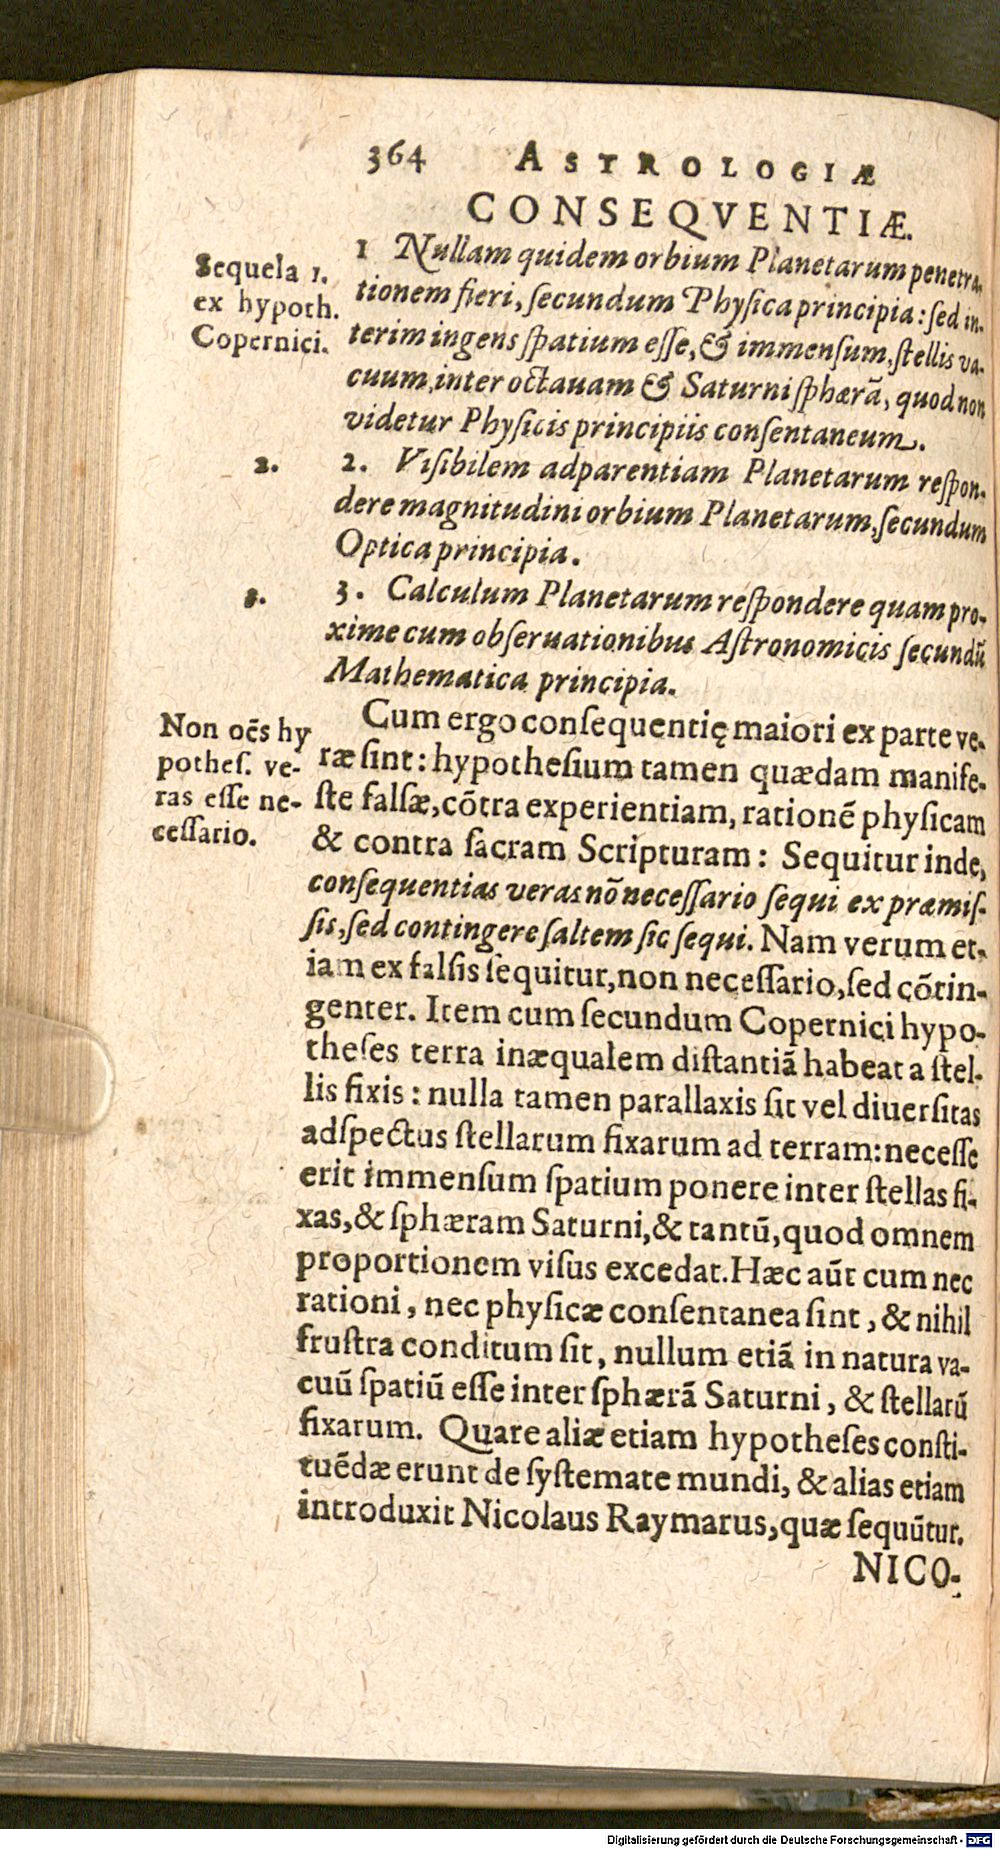 364 ASTROLOGIÆ
CONSEQVENTIÆ.
Sequela 1.
ex hypoth.
Copernici.
1 Nullam quidem orbium Planetarum penetra-
tionem fieri, ſecundum Phyſica principia: ſed in-
terim ingens ſpatium eſſe, & immenſum, ſtellis va-
cuum, inter octauam & Saturni ſphærã, quod non
videtur Phyſicis principiis conſentaneum.
2.
2. Viſibilem adparentiam Planetarum reſpon-
dere magnitudini orbium Planetarum, ſecundum
Optica principia.
3.
3. Calculum Planetarum reſpondere quam pro-
xime cum obſeruationibus Aſtronomicis ſecundũ
Mathematica principia.
Non oẽs hy
potheſ. ve-
ras eſſe ne-
ceſſario.
Cum ergo conſequentię maiori ex parte ve-
ræ ſint: hypotheſium tamen quædam manife-
ſte falſæ, cõtra experientiam, rationẽ phyſicam
& contra ſacram Scripturam: Sequitur inde,
conſequentias veras nõ neceſſario ſequi ex præmiſ-
ſis, ſed contingere ſaltem ſic ſequi. Nam verum et-
iam ex falſis ſequitur, non neceſſario, ſed cõtin-
genter. Item cum ſecundum Copernici hypo-
theſes terra inæqualem diſtantiã habeat a ſtel-
lis fixis: nulla tamen parallaxis ſit vel diuerſitas
adſpectus ſtellarum fixarum ad terram: neceſſe
erit immenſum ſpatium ponere inter ſtellas fi-
xas, & ſphæram Saturni, & tantũ, quod omnem
proportionem viſus excedat. Hæc aũt cum nec
rationi, nec phyſicæ conſentanea ſint, & nihil
fruſtra conditum ſit, nullum etiã in natura va-
cuũ ſpatiũ eſſe inter ſphærã Saturni, & ſtellarũ
fixarum. Quare aliæ etiam hypotheſes conſti-
tuẽdæ erunt de ſyſtemate mundi, & alias etiam
introduxit Nicolaus Raymarus, quæ ſequũtur.
NICO-
Digitalisierung gefördert durch die Deutsche Forschungsgemeinschaft - DFG